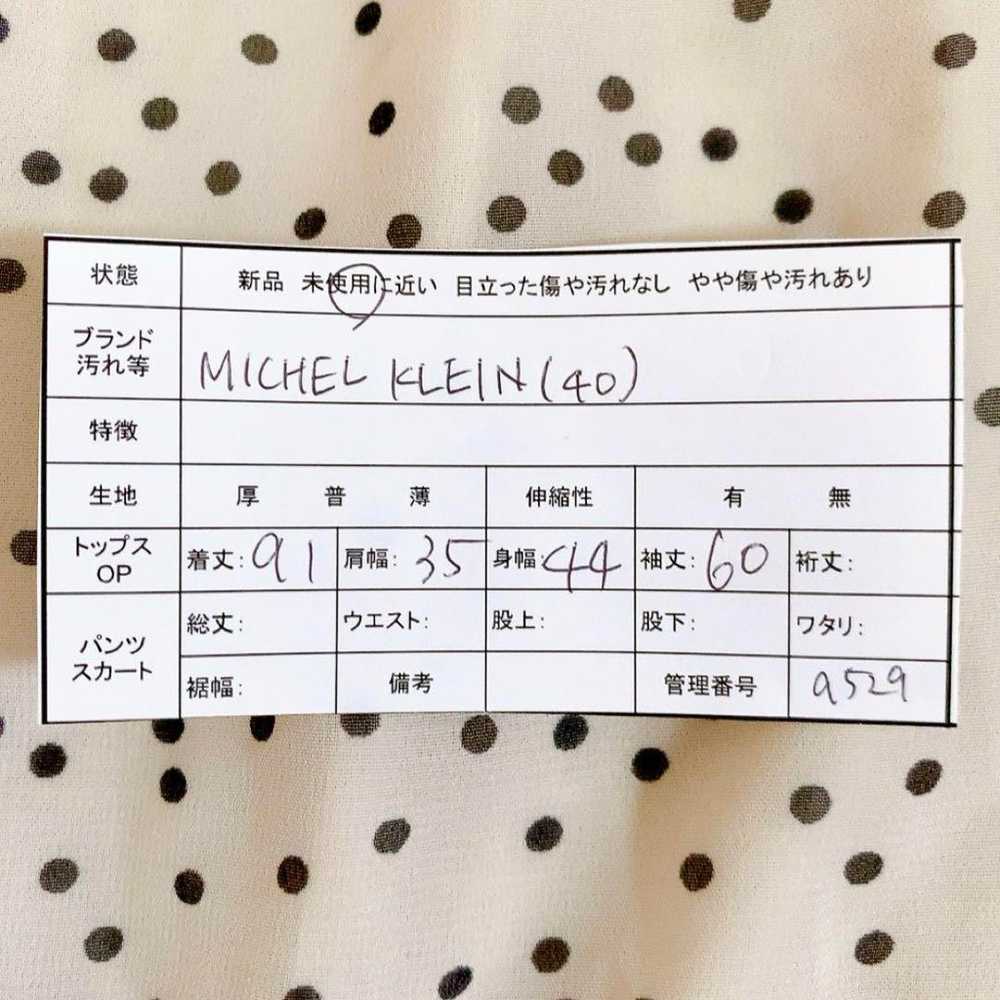 状態 新品 未使用に近い 目立った傷や汚れなし やや傷や汚れあり
ブランド
汚れ等 MICHEL KLEIN (40)
特徴
生地 厚 普 薄 伸縮性 有 無
トップス
OP 着丈: 91 肩幅: 35 身幅: 44 袖丈: 60 裄丈:
パンツ
スカート 総丈: ウエスト: 股上: 股下: ワタリ:
裾幅: 備考 管理番号 a529